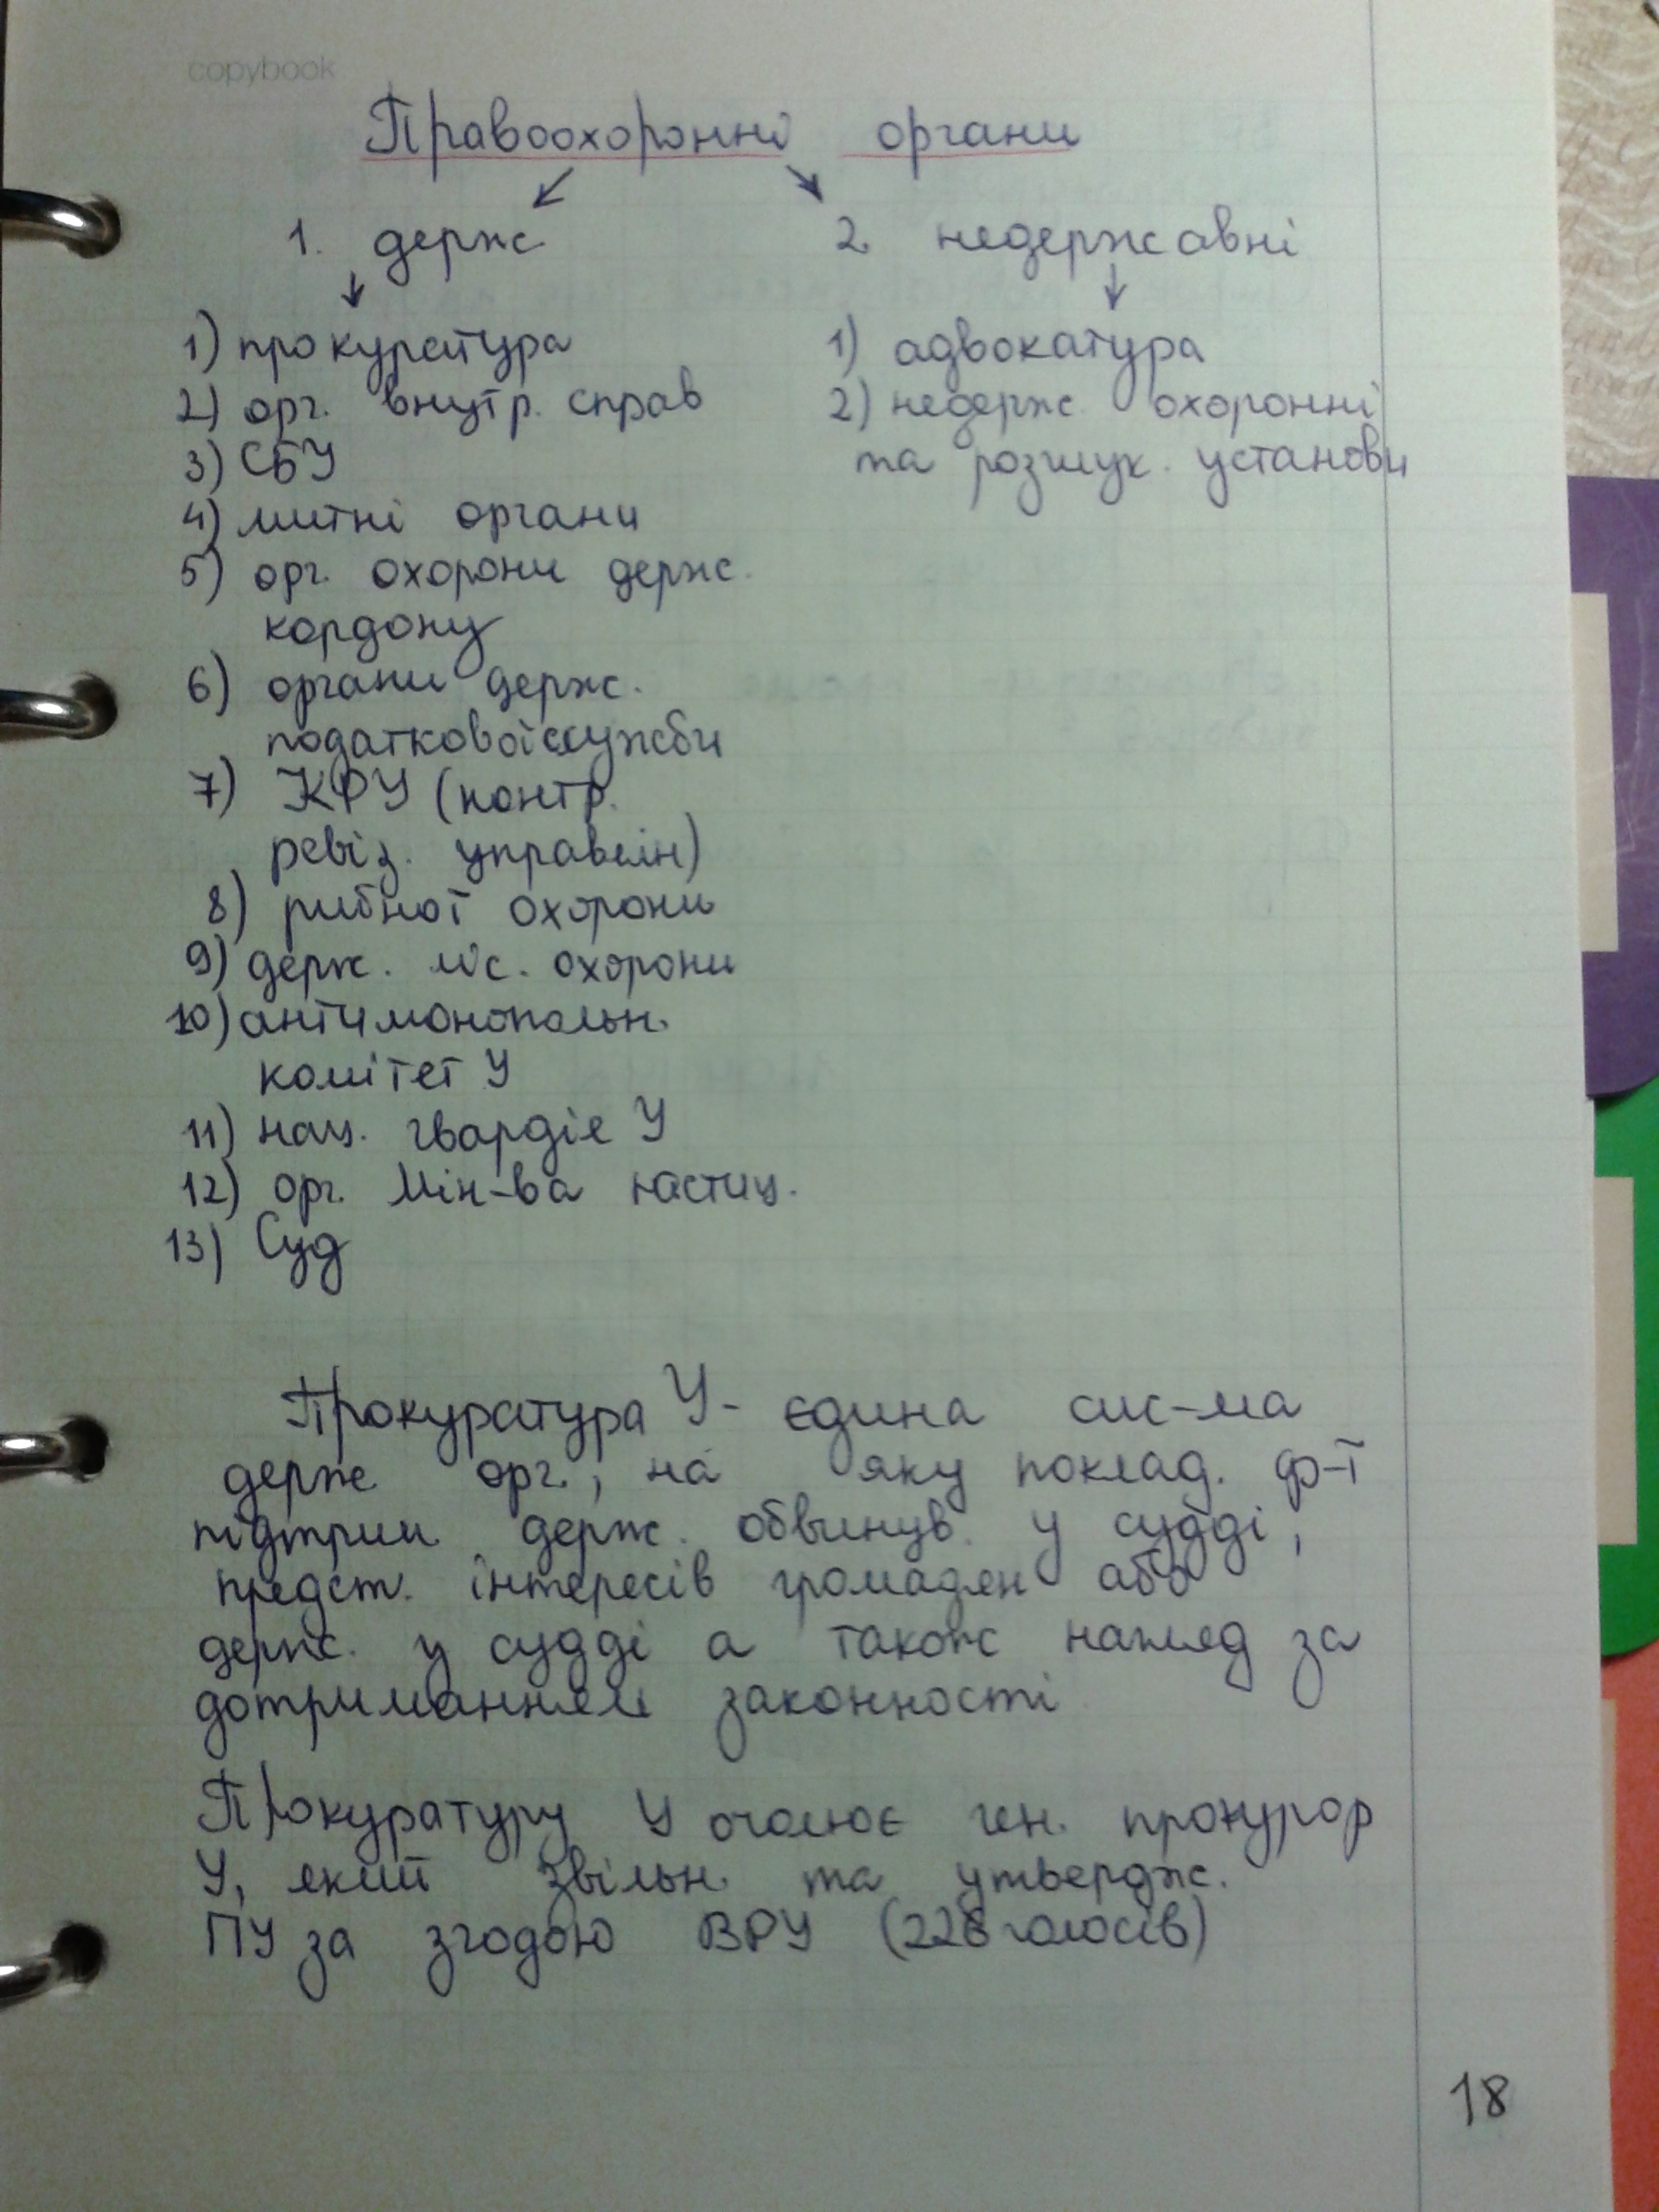 copybook
Правоохоронні органи
1. держ
2. недержавні
1) прокуратура
2) орг. внутр. справ
3) СБУ
4) митні органи
5) орг. охорони держ.
кордону
6) органи держ.
податкової служби
7) КРУ (контр.
ревіз. управлін)
8) рибної охорони
9) держ. ліс. охорони
10) антимонопольн.
комітет У
11) нац. гвардія У
12) орг. Мін-ва юстиц.
13) Суд
1) адвокатура
2) недерж. охоронні
та розшук. установи
Прокуратура У - єдина сис-ма
держ орг., на яку поклад. ф-ї
підтрим держ. обвинув. у судді,
предст. інтересів громадян або
держ. у судді а також нагляд за
дотриманням законності
Прокуратуру У очолює ген. прокурор
У, який звільн. та утвердж.
ПУ за згодою ВРУ (226 голосів)
18